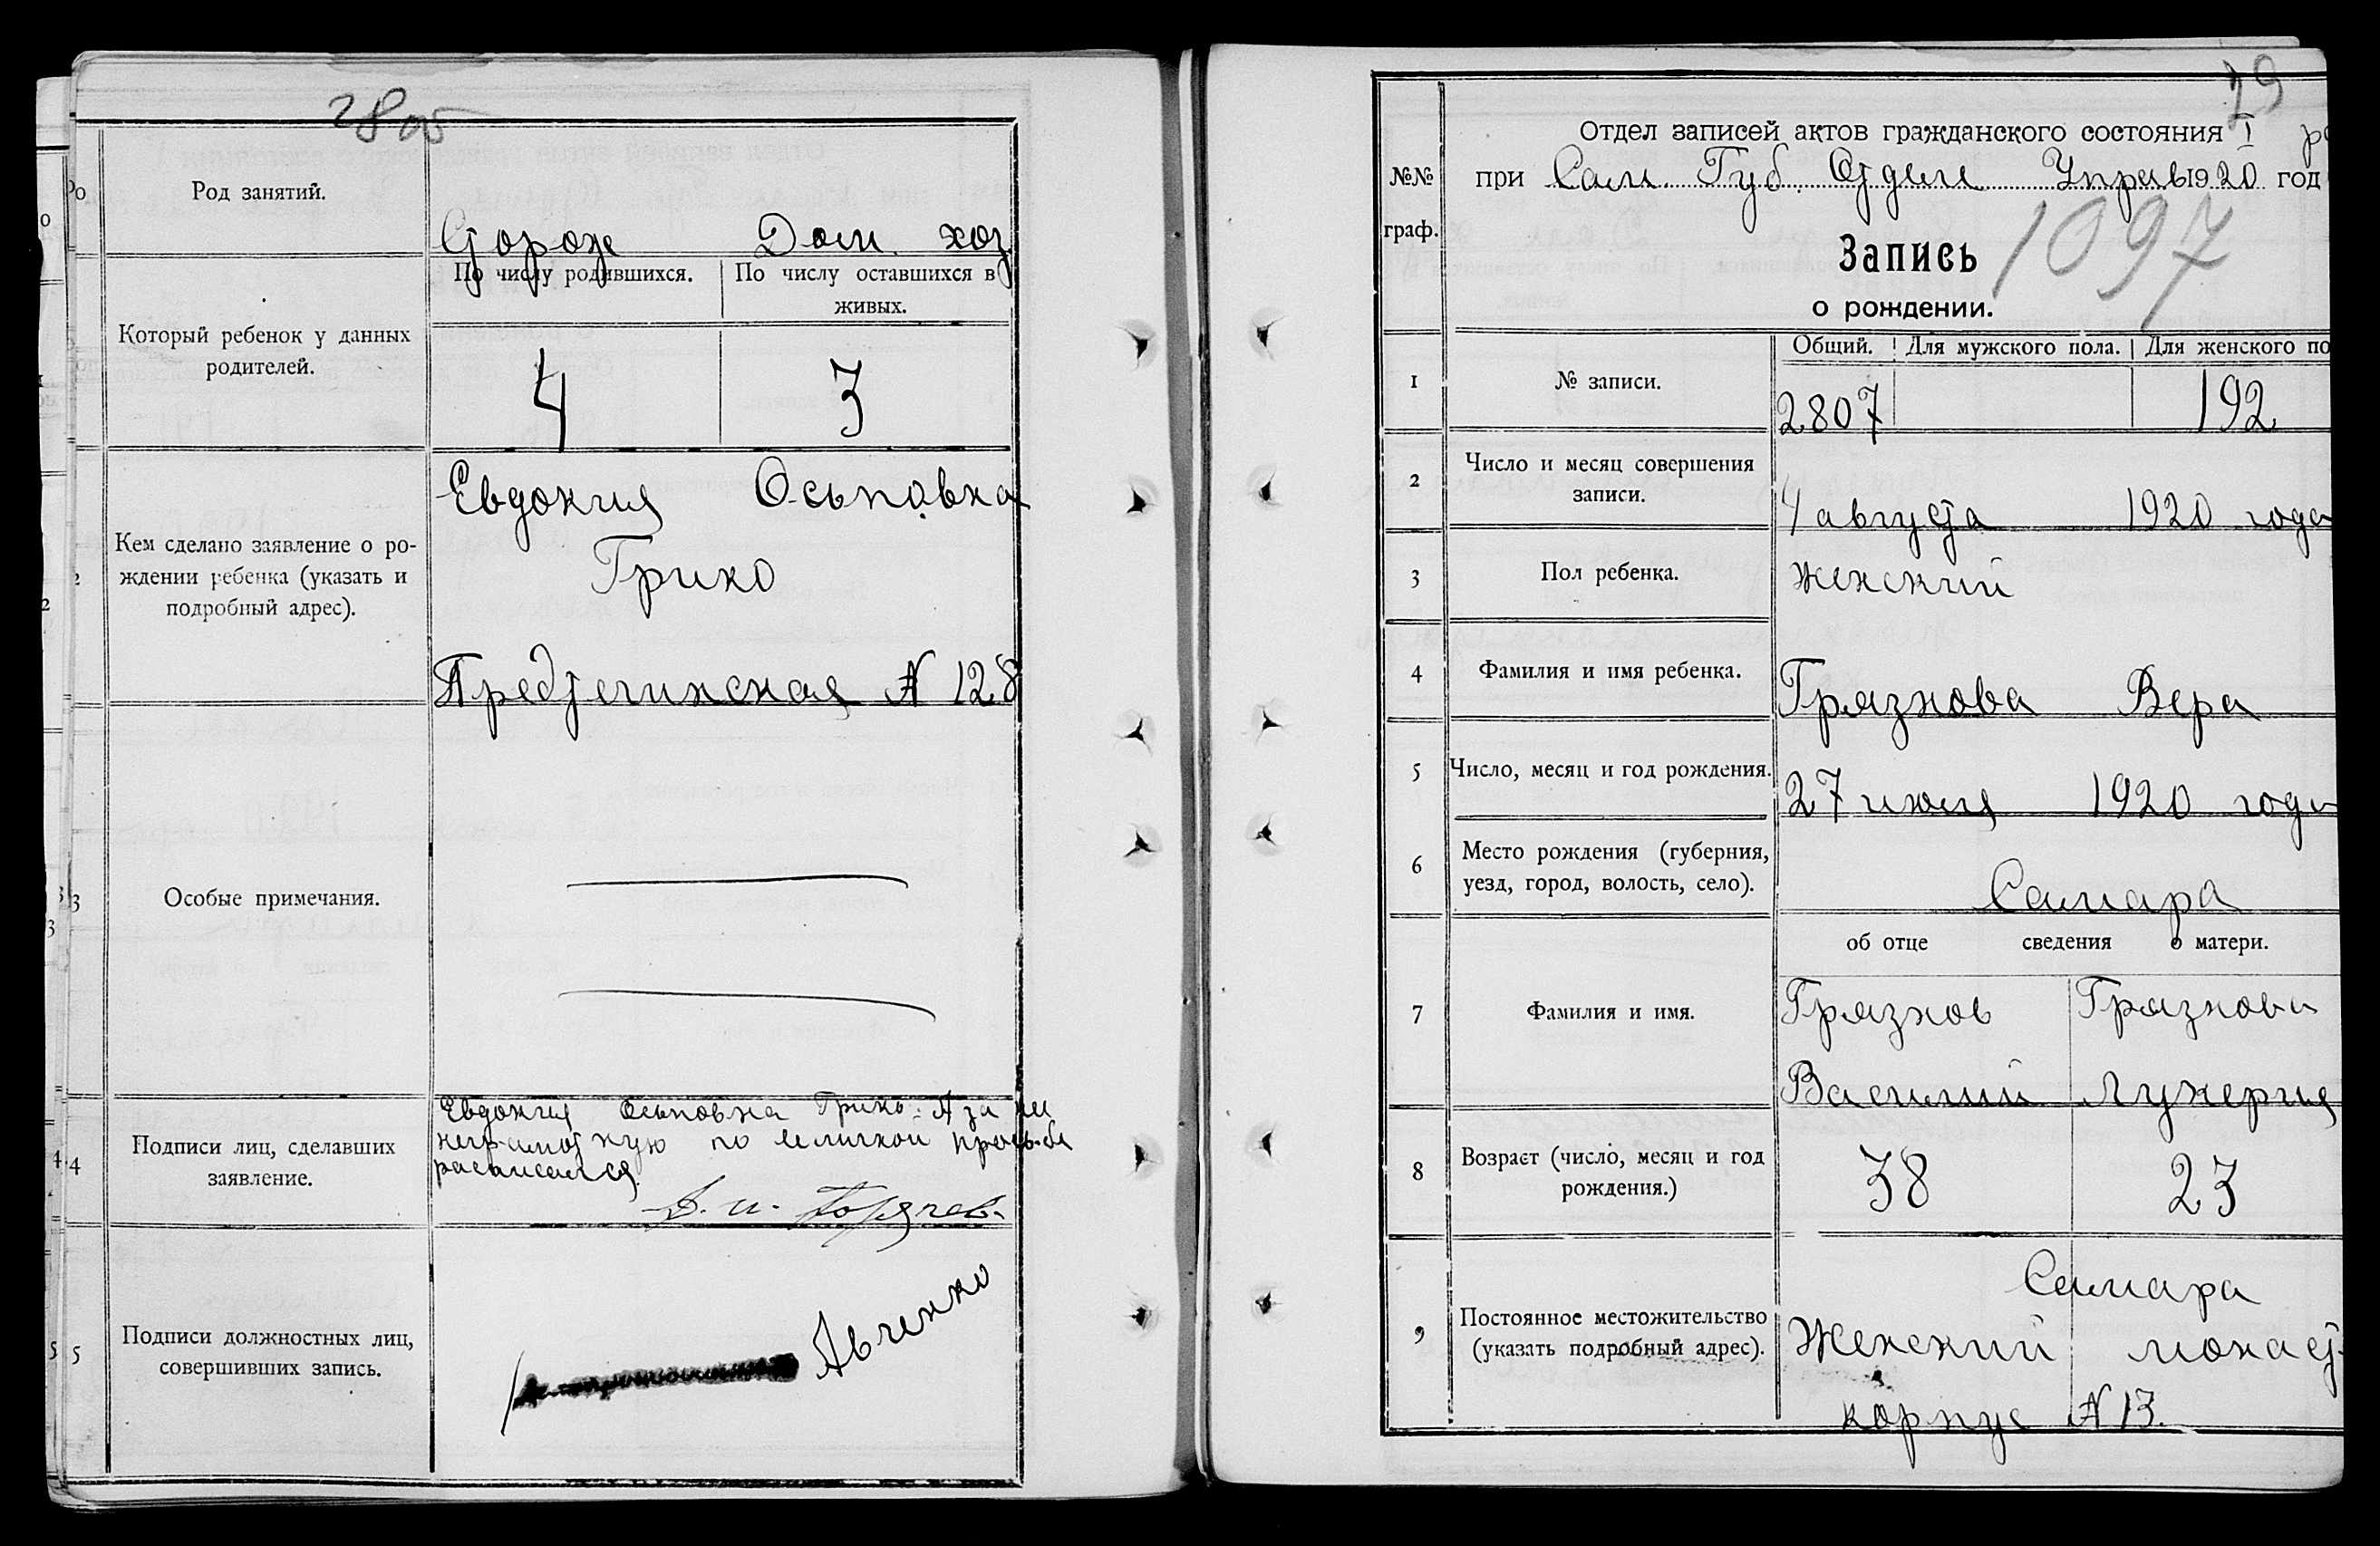 2805
Род занятий.
Сторож Дом. хоз.
Который ребенок у данных
родителей.
По числу родившихся.
По числу оставшихся в
живых.
4
3
Кем сделано заявление о ро-
ждении ребенка (указать и
подробный адрес).
Евдокия Осиповна
Грико
Предтеченская № 128
Особые примечания.
Подписи лиц, сделавших
заявление.
Евдокия Осиповна Грико. А за ни
неграмотную по личной просьбе
расписался
Подписи должностных лиц,
совершивших запись.
29
Отдел записей актов гражданского состояния I
№№
граф.
при Сам. Губ. Отделе Управ 1920 год
1097
Запись
о рождении.
1
№ записи.
Общий. Для мужского пола. Для женского по
2807 192
2
Число и месяц совершения
записи.
4 августа 1920 года
3
Пол ребенка.
женский
4
Фамилия и имя ребенка.
Грязнова Вера
5
Число, месяц и год рождения.
27 июля 1920 года
6
Место рождения (губерния,
уезд, город, волость, село).
Самара
об отце сведения о матери.
7
Фамилия и имя.
Грязнов Грязнова
Василий Лукерия
8
Возраст (число, месяц и год
рождения.)
38 23
9
Постоянное местожительство
(указать подробный адрес).
Самара
Женский монаст.
корпус № 13.